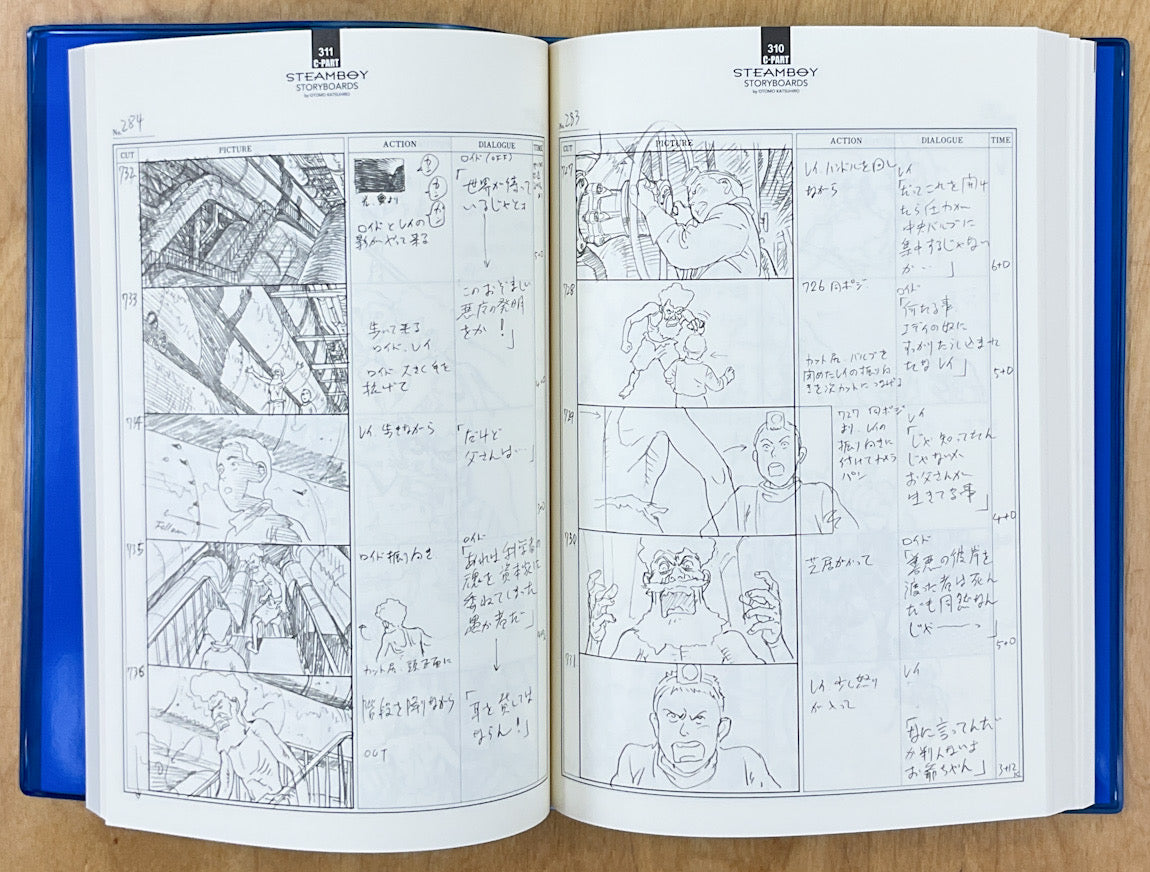 310
C-PART
STEAMBOY
STORYBOARDS
by OTOMO KATSUHIRO
No. 283
CUT
PICTURE
ACTION
DIALOGUE
TIME
727
レイ、ハンドルを回し
ながら
レイ
「だってこれを開け
たら圧力が
中央バルブに
集中するじゃない
か‥」
6+0
728
726 同ポジ
カット尻、バルブを
閉めたレイの振りむ
きを次カットにつなげる
ロイド
「何たる事
エディの奴に
すっかりたらし込まれ
たな レイ」
5+0
729
727 同ポジ
より、レイの
振りむきに
付けてカメラ
パン
レイ
「じゃ知ってたん
じゃないか
お父さんが
生きてる事」
4+0
730
芝居がかって
ロイド
「善悪の彼岸を
渡った者は死ん
だも同然なん
じゃーーっ」
5+0
731
レイ、少し怒り
が入って
レイ
「なに言ってんだ
か判んないよ
お爺ちゃん」
3+12
311
C-PART
STEAMBOY
STORYBOARDS
by OTOMO KATSUHIRO
No. 284
CUT
PICTURE
ACTION
DIALOGUE
TIME
732
ロイドとレイの
影がやって来る
ロイド(OFF)
「世界が待って
いるじゃと!
5+0
733
歩いて来る
ロイド、レイ
ロイド 大きく手を
拡げて
このおぞましい
悪魔の発明
をか!」
4+0
734
Follow
レイ 歩きながら
「だけど
父さんは…」
3+0
735
ロイド振りむき
カット尻、頭正面に
ロイド
「あれは科学者の
魂を資本家に
委ねてしまった
愚か者だ」
736
階段を降りながら
OUT
「耳を貸しては
ならん!」